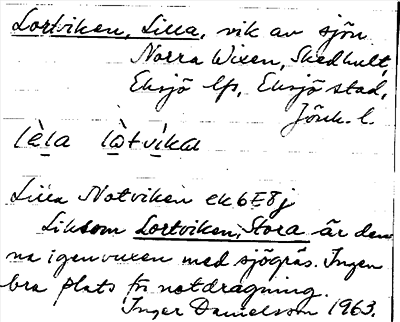 Lortviken, Lilla, vik av sjön
Norra Wixen, Skedhult,
Eksjö lfs, Eksjö stad,
Jönk. l.
Lilla Notviken ek 6E8j
Liksom Lortviken, Stora är den-
na igenvuxen med sjögräs. Ingen
bra plats för notdragning.
Inger Danielsson 1963.